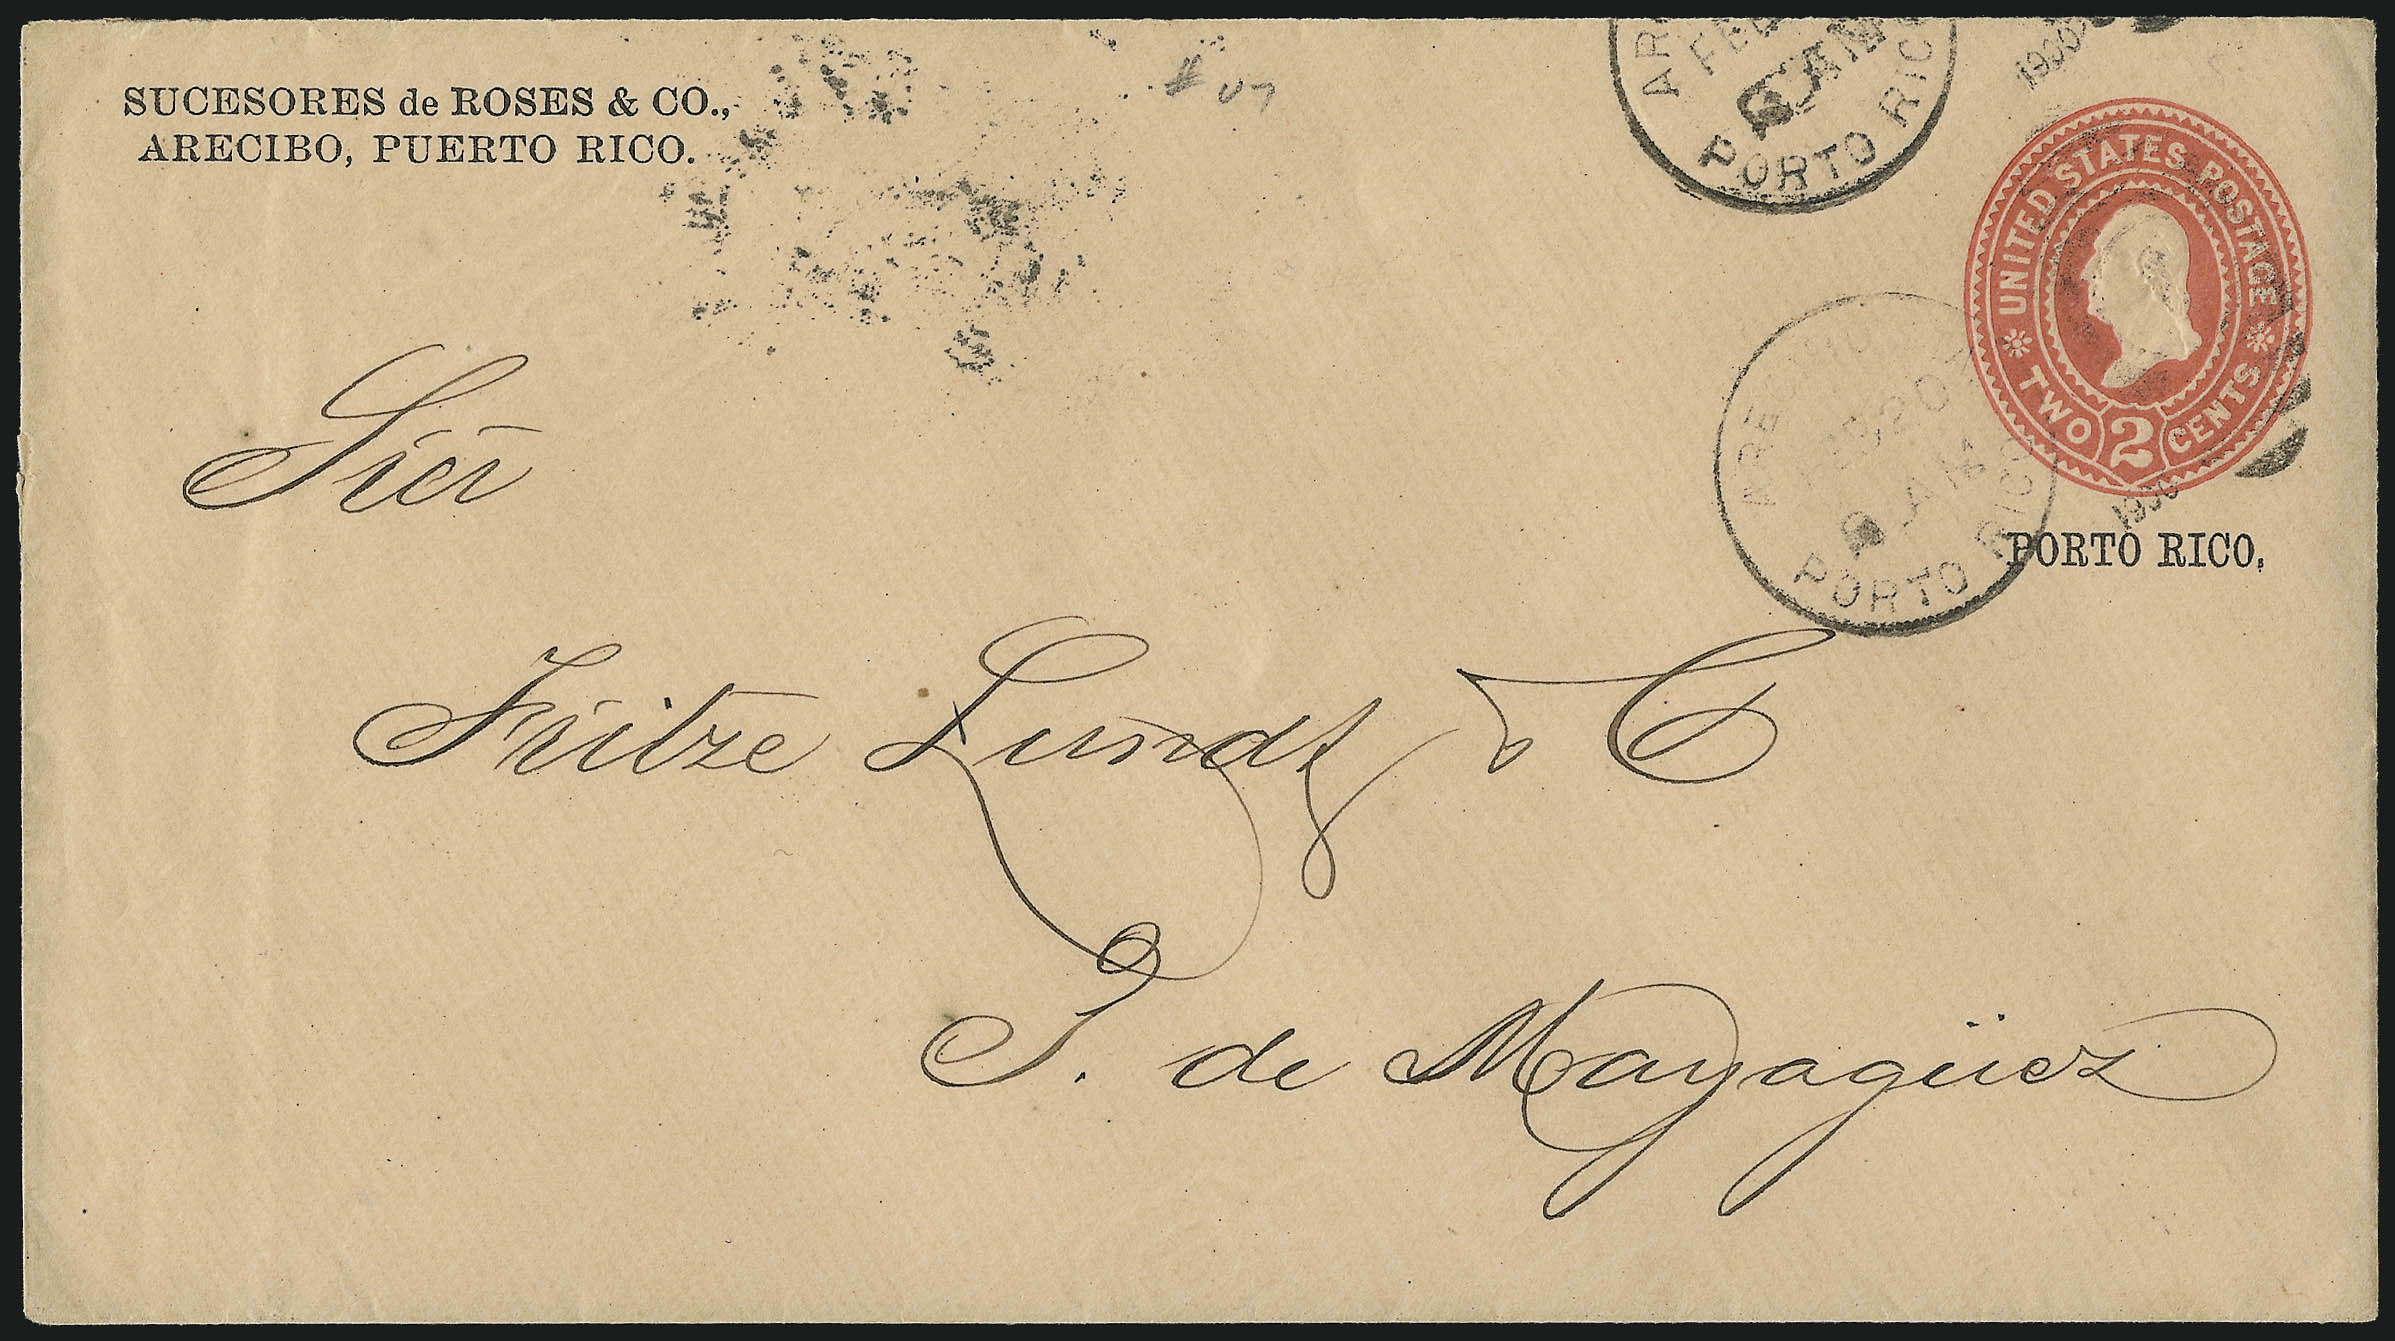 SUCESORES de ROSES & CO.,
ARECIBO, PUERTO RICO.
FEB
9 AM
PORTO RICO
1900
UNITED STATES POSTAGE
TWO 2 CENTS
ARECIBO
FEB 20
9 AM
PORTO RICO
1900
PORTO RICO.
Fritze Lundt & C
de Mayagüez